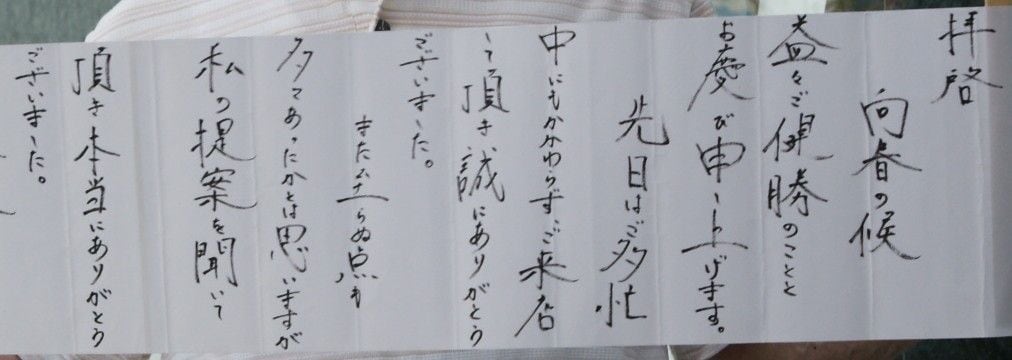 拝啓
向春の候
益々ご健勝のことと
お慶び申し上げます。
先日はご多忙
中にもかかわらずご来店
して頂き誠にありがとう
ございました。
また至らぬ点も
多々あったかとは思いますが
私の提案を聞いて
頂き本当にありがとう
ございました。